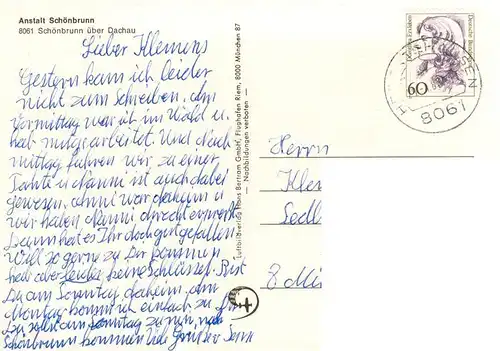 Anstalt Schönbrunn
8061 Schönbrunn über Dachau
Lieber Klemens
Gestern kam ich leider
nicht zum Schreiben, am
Vormittag war ich im Wald u.
hab mitgearbeitet. Und Nach
mittag fuhren wir zu einer
Tante u Nanni ist auch dabei
gewesen, wir daheim u
wir haben Nanni
Dann hat es Ihr doch gut gefallen.
Will so gerne zu Dir kommen
hab aber leider keine Schlüssel. Bist
Du am Sonntag daheim, am
Montag kommt ich einfach zu Dir
Du sollst am Sonntag zu mir, nach
Schönbrunn kommen viele Grüsse
Luftbildverlag Hans Bertram GmbH, Flughafen Riem, 8000 München 87
Nachbildungen verboten
Deutsche Bundes
60
8061
Herrn
Kle
Sedl
8 Mü